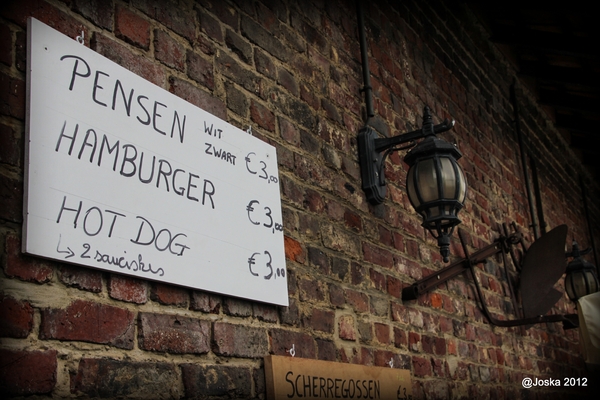 PENSEN WIT ZWART €3,00
HAMBURGER €3,00
HOT DOG €3,00
↳ 2 saucisjes
SCHERREGOSSEN
@Joska 2012